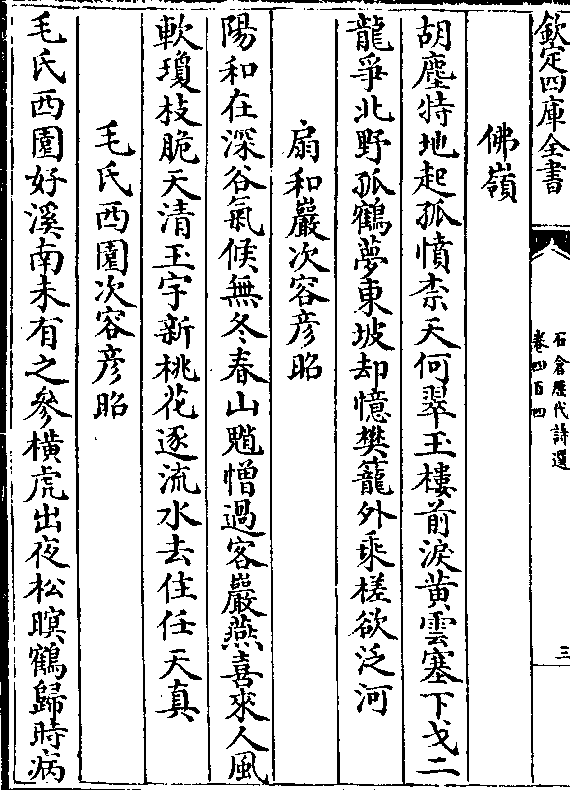 欽定四庫全書
石倉歷代詩選
卷四百四
三
佛嶺
胡塵特地起孤憤柰天何翠玉樓前淚黄雲塞下戈二
龍爭北野孤鶴夢東坡却憶樊籠外乘槎欲泛河
扇和巖次容彦昭
陽和在深谷氣候無冬春山魈憎過客巖燕喜來人風
軟瓊枝脆天清玉宇新桃花逐流水去住任天真
毛氏西園次容彦昭
毛氏西園好溪南未有之參橫虎出夜松暝鶴歸時病